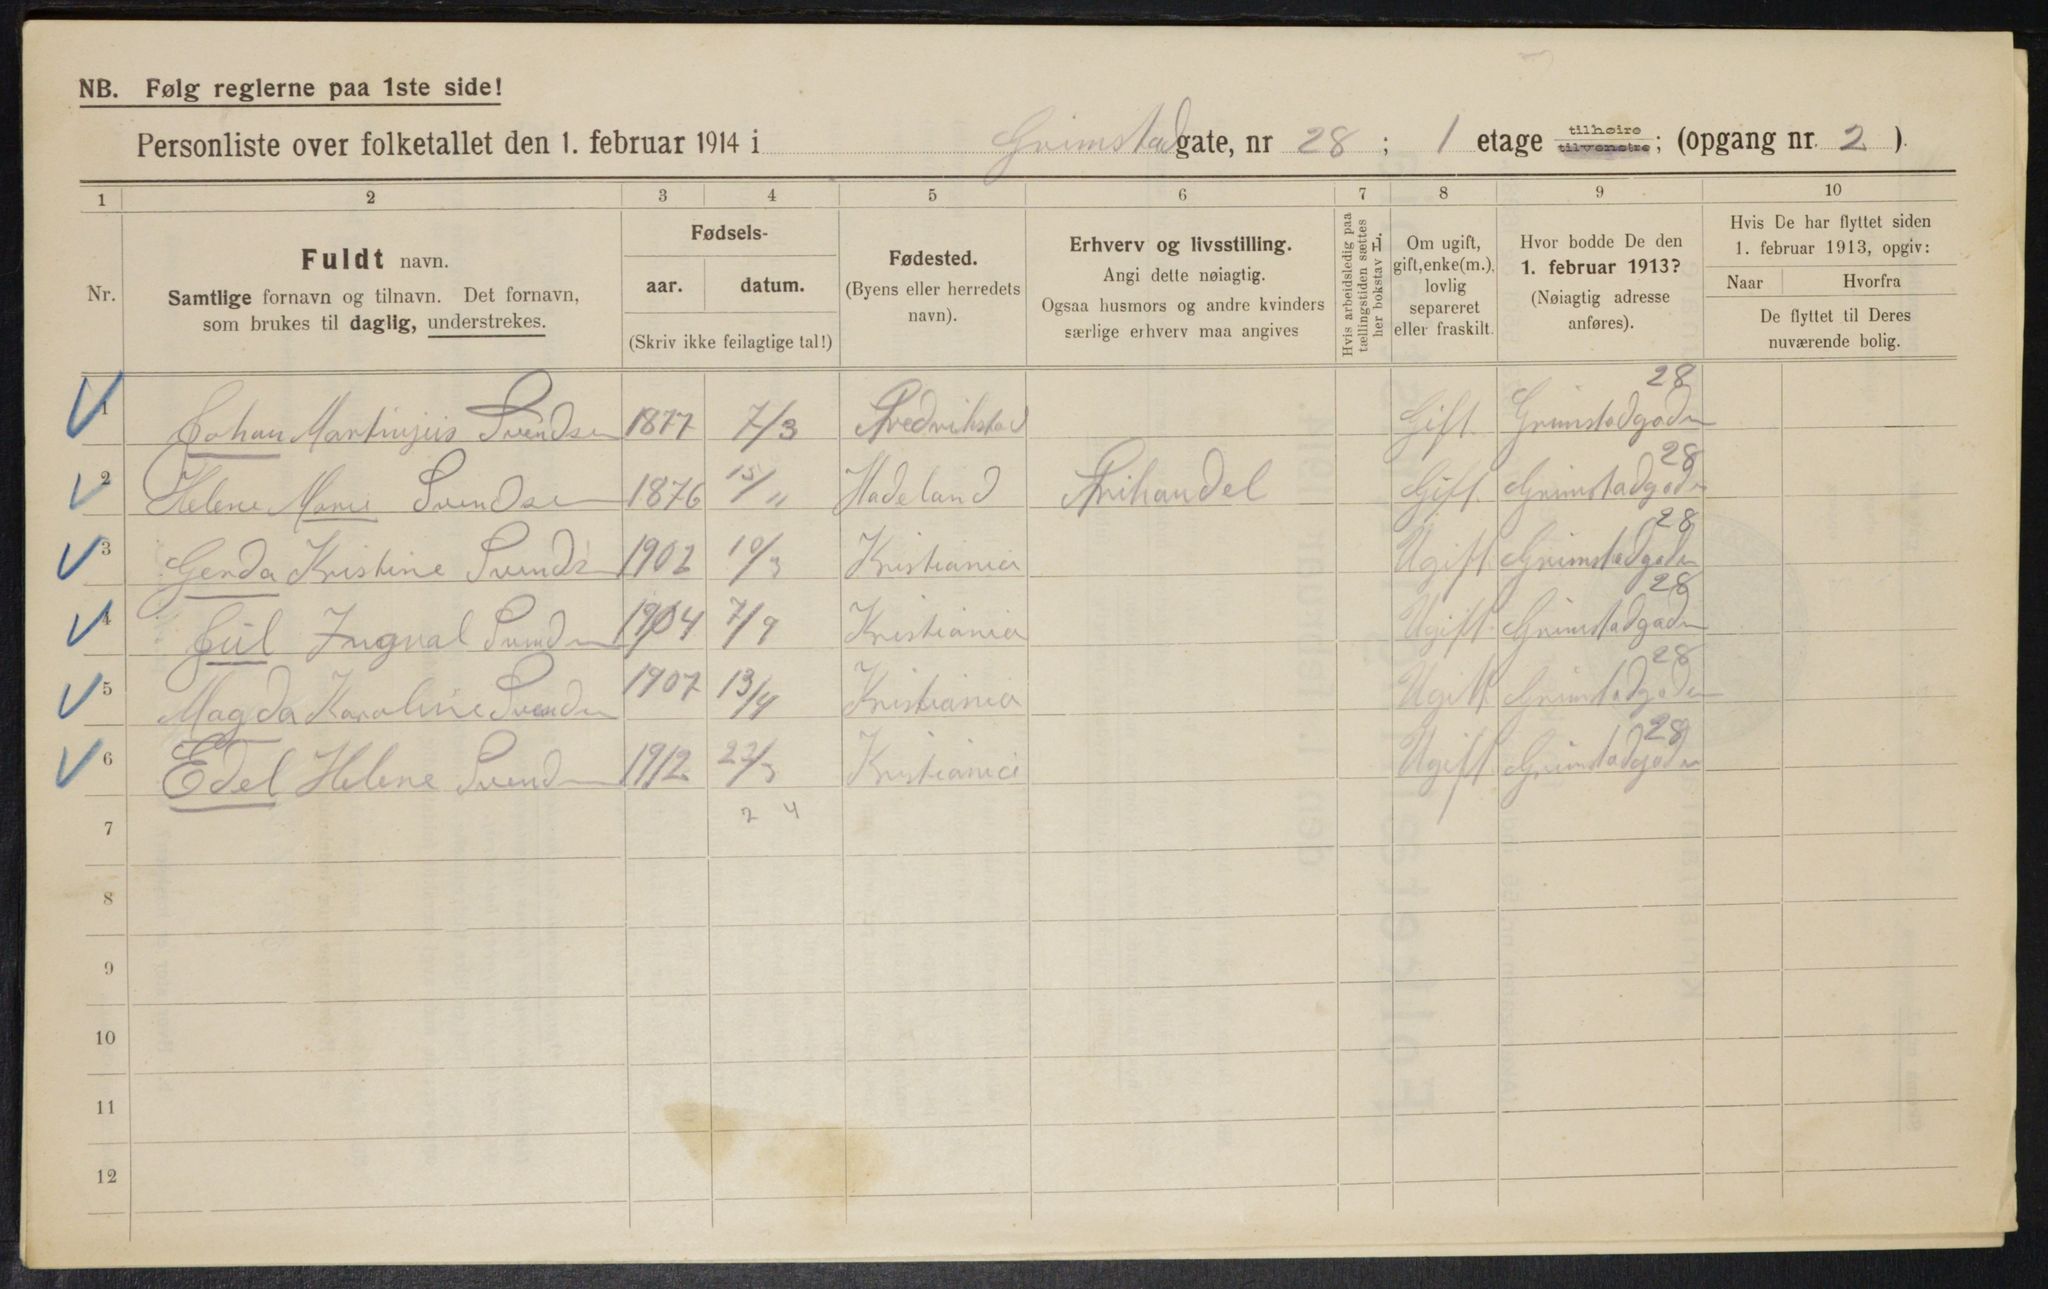 NB. Følg reglerne paa 1ste side!
Personliste over folketallet den 1. februar 1914 i Grimstadgate, nr 28 ; 1 etage tilhøire tilvenstre ; (opgang nr. 2 ).
1 2 3 4 5 6 7 8 9 10
Nr.
Fuldt navn.
Samtlige fornavn og tilnavn. Det fornavn,
som brukes til daglig, understrekes.
Fødsels-
aar. datum.
(Skriv ikke feilagtige tal!)
Fødested.
(Byens eller herredets
navn).
Erhverv og livsstilling.
Angi dette nøiagtig.
Ogsaa husmors og andre kvinders
særlige erhverv maa angives
Hvis arbeidsledig paa
tællingstiden sættes
her bokstav L.
Om ugift,
gift, enke(m.),
lovlig
separeret
eller fraskilt.
Hvor bodde De den
1. februar 1913?
(Nøiagtig adresse
anføres).
Hvis De har flyttet siden
1. februar 1913, opgiv:
Naar Hvorfra
De flyttet til Deres
nuværende bolig.
1 Johan Martinius Svendsen 1877 7/3 Fredrikstad Gift Grimstadgaden 28
2 Helene Marie Svendsen 1876 15/11 Hadeland Frihandel Gift Grimstadgaden 28
3 Gerda Kristine Svends 1902 10/3 Kristiania Ugift Grimstadgaden 28
4 Jul Ingval Svendsen 1904 7/9 Kristiania Ugift Grimstadgaden 28
5 Magda Karoline Svendsen 1907 13/4 Kristiania Ugift Grimstadgaden 28
6 Edel Helene Svendsen 1912 22/3 Kristiania Ugift Grimstadgaden 28
7 2 4
8
9
10
11
12